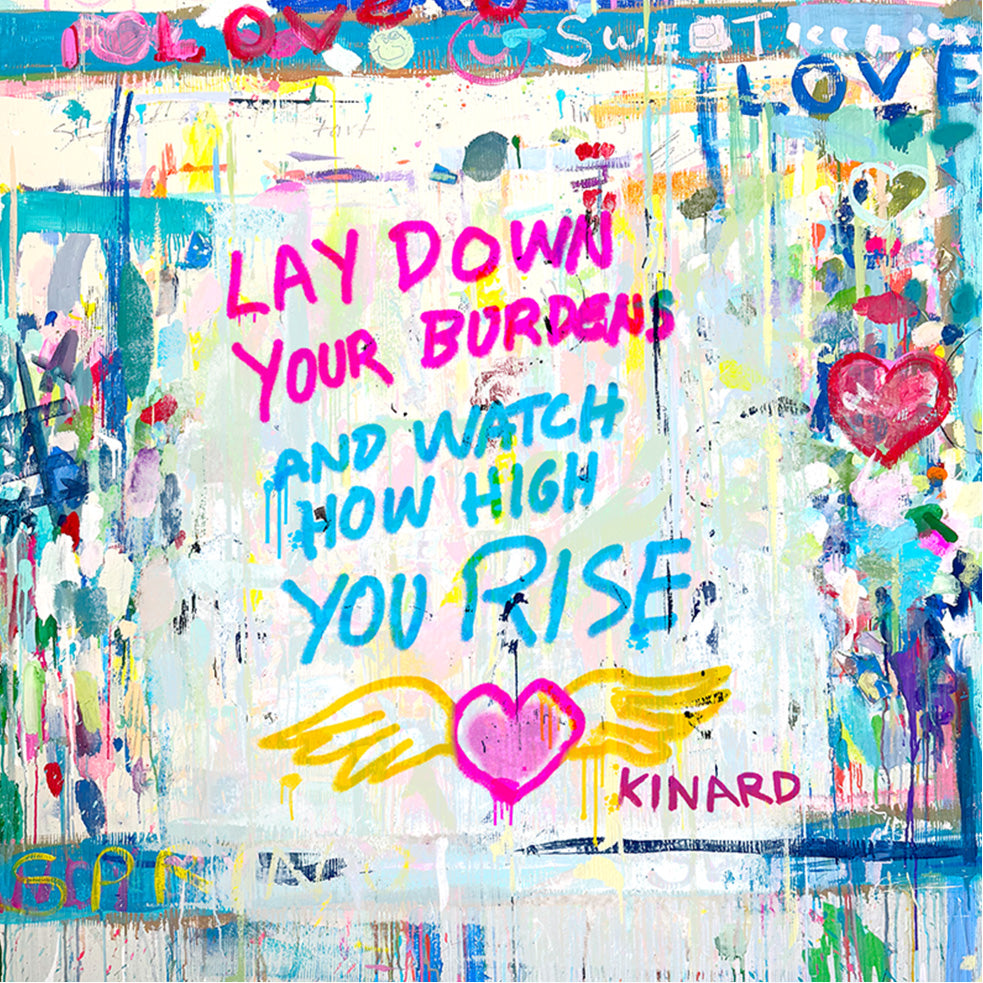 LOVE
SWEET
LOVE
LAY DOWN
YOUR BURDENS
AND WATCH
HOW HIGH
YOU RISE
KINARD